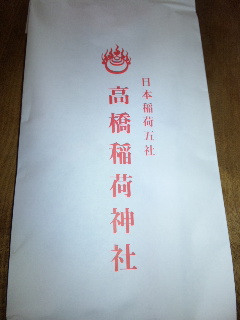 日本稲荷五社
高橋稲荷神社